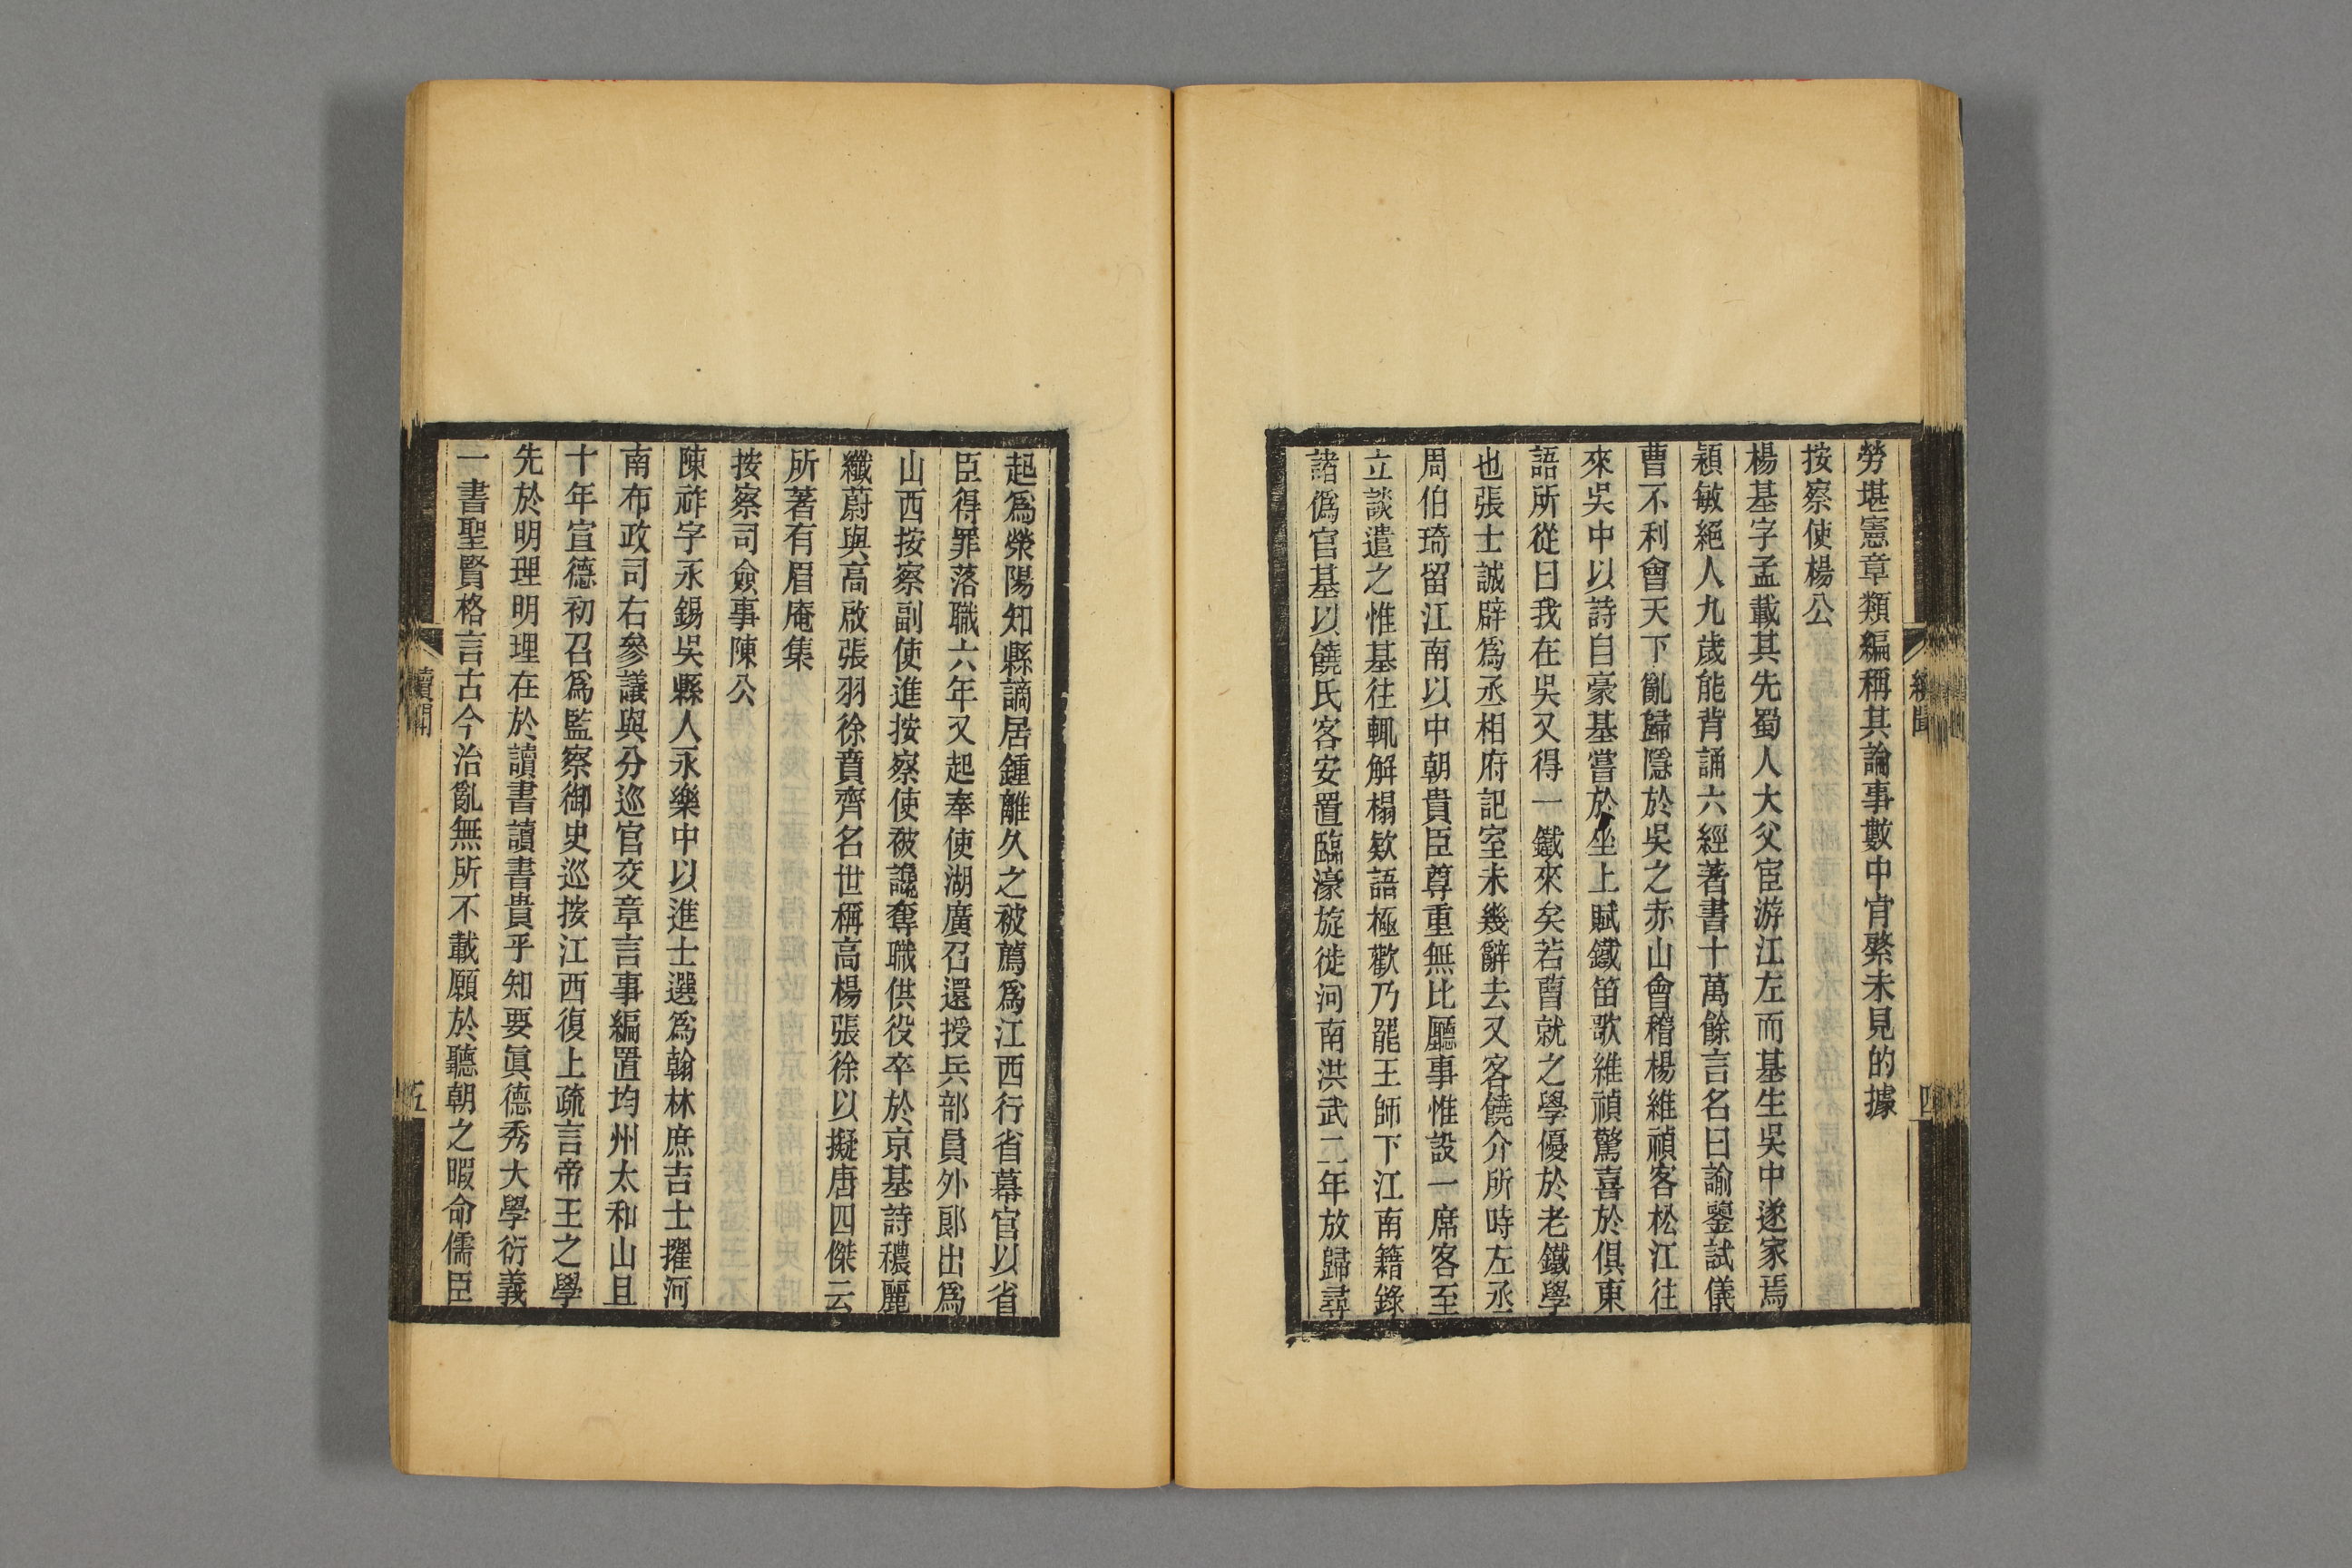 勞堪憲章類編稱其論事數中肯綮未見的據
按察使楊公
楊基字孟載其先蜀人大父宦游江左而基生吳中遂家焉
穎敏絕人九歲能背誦六經著書十萬餘言名曰論鑒試儀
曹不利會天下亂歸隱於吳之赤山會稽楊維禎客松江往
來吳中以詩自豪基嘗於坐上賦鐵笛歌維禎驚喜於俱東
語所從曰我在吳又得一鐵來矣若曹就之學優於老鐵學
也張士誠辟為丞相府記室未幾辭去又客饒介所時左丞
周伯琦留江南以中朝貴臣尊重無比廳事惟設一席客至
立談遣之惟基往輒解榻欵語極歡乃罷王師下江南籍錄
諸僞官基以饒氏客安置臨濠旋徙河南洪武二年放歸尋
起爲滎陽知縣謫居鍾離久之被薦爲江西行省幕官以省
臣得罪落職六年又起奉使湖廣召還授兵部員外郞出爲
山西按察副使進按察使被讒奪職供役卒於京基詩穠麗
纖蔚與高啟張羽徐賁齊名世稱高楊張徐以擬唐四傑云
所著有眉庵集
按察司僉事陳公
陳祚字永錫吳縣人永樂中以進士選爲翰林庶吉士擢河
南布政司右參議與分巡官交章言事編置均州太和山且
十年宣德初召爲監察御史巡按江西復上疏言帝王之學
先於明理明理在於讀書讀書貴乎知要眞德秀大學衍義
一書聖賢格言古今治亂無所不載願於聽朝之暇命儒臣
四
五